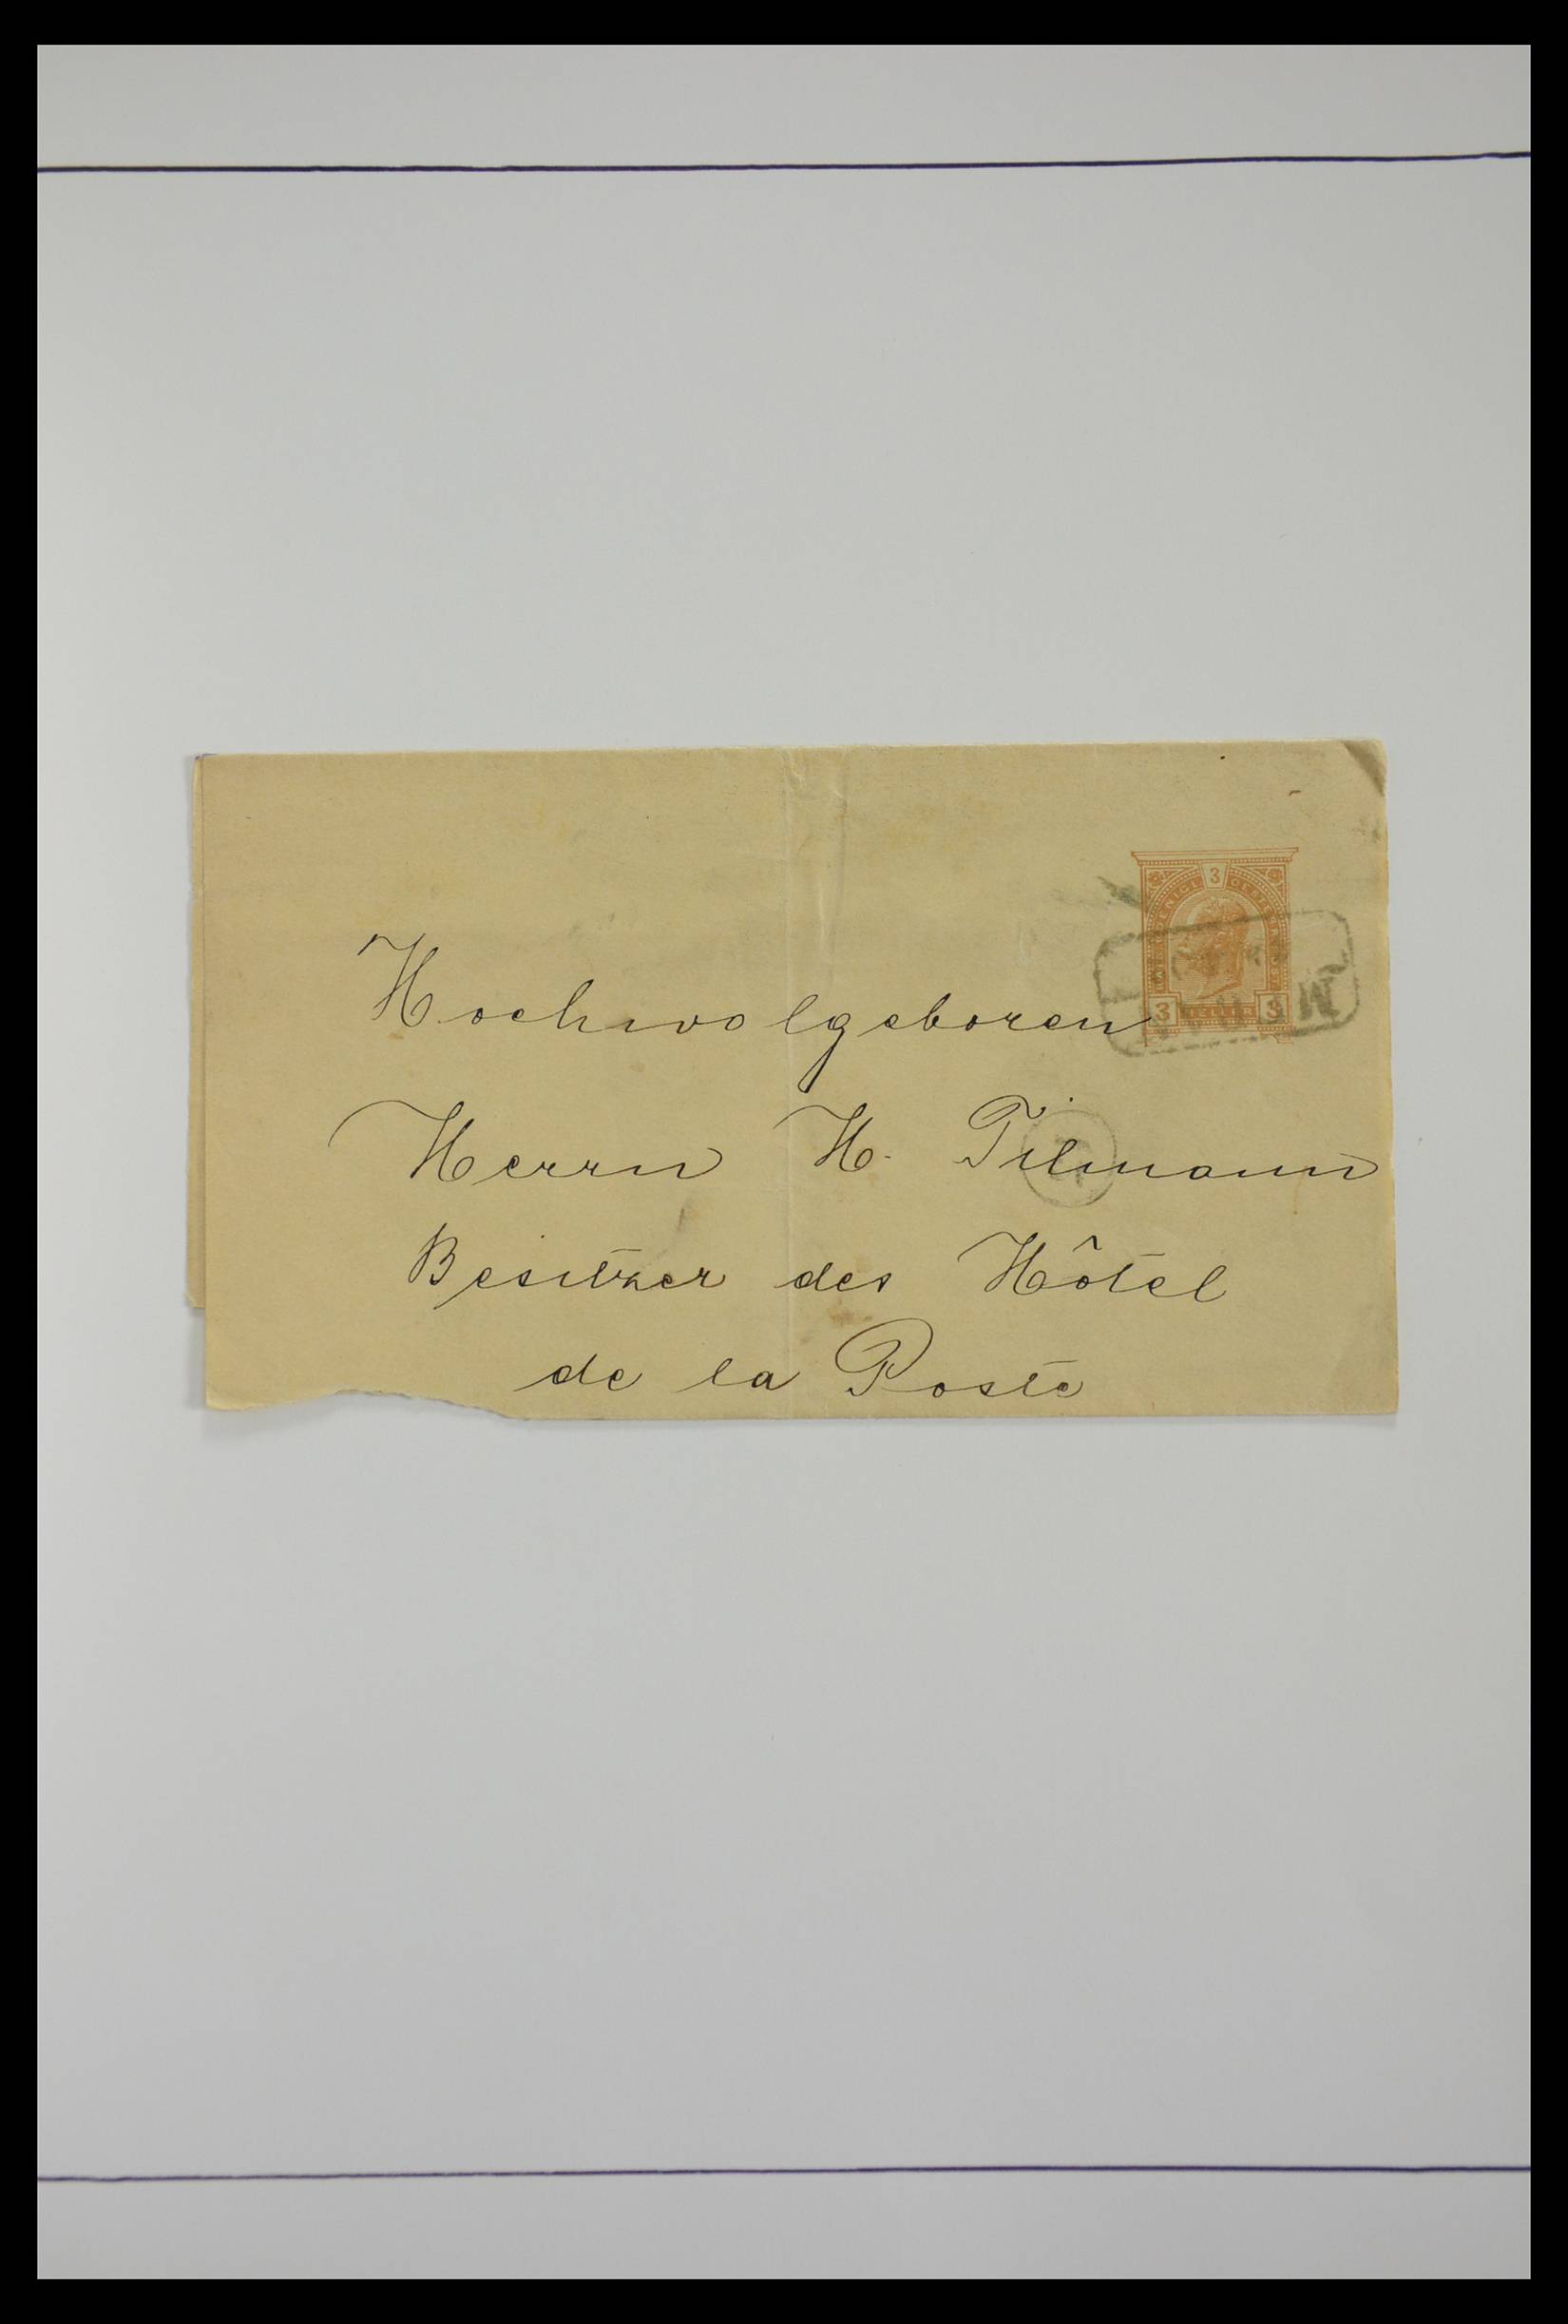 3
3 HELLER 3
Hochwolgeboren
Herrn H. Tilmann
Besitzer des Hôtel
de la Poste